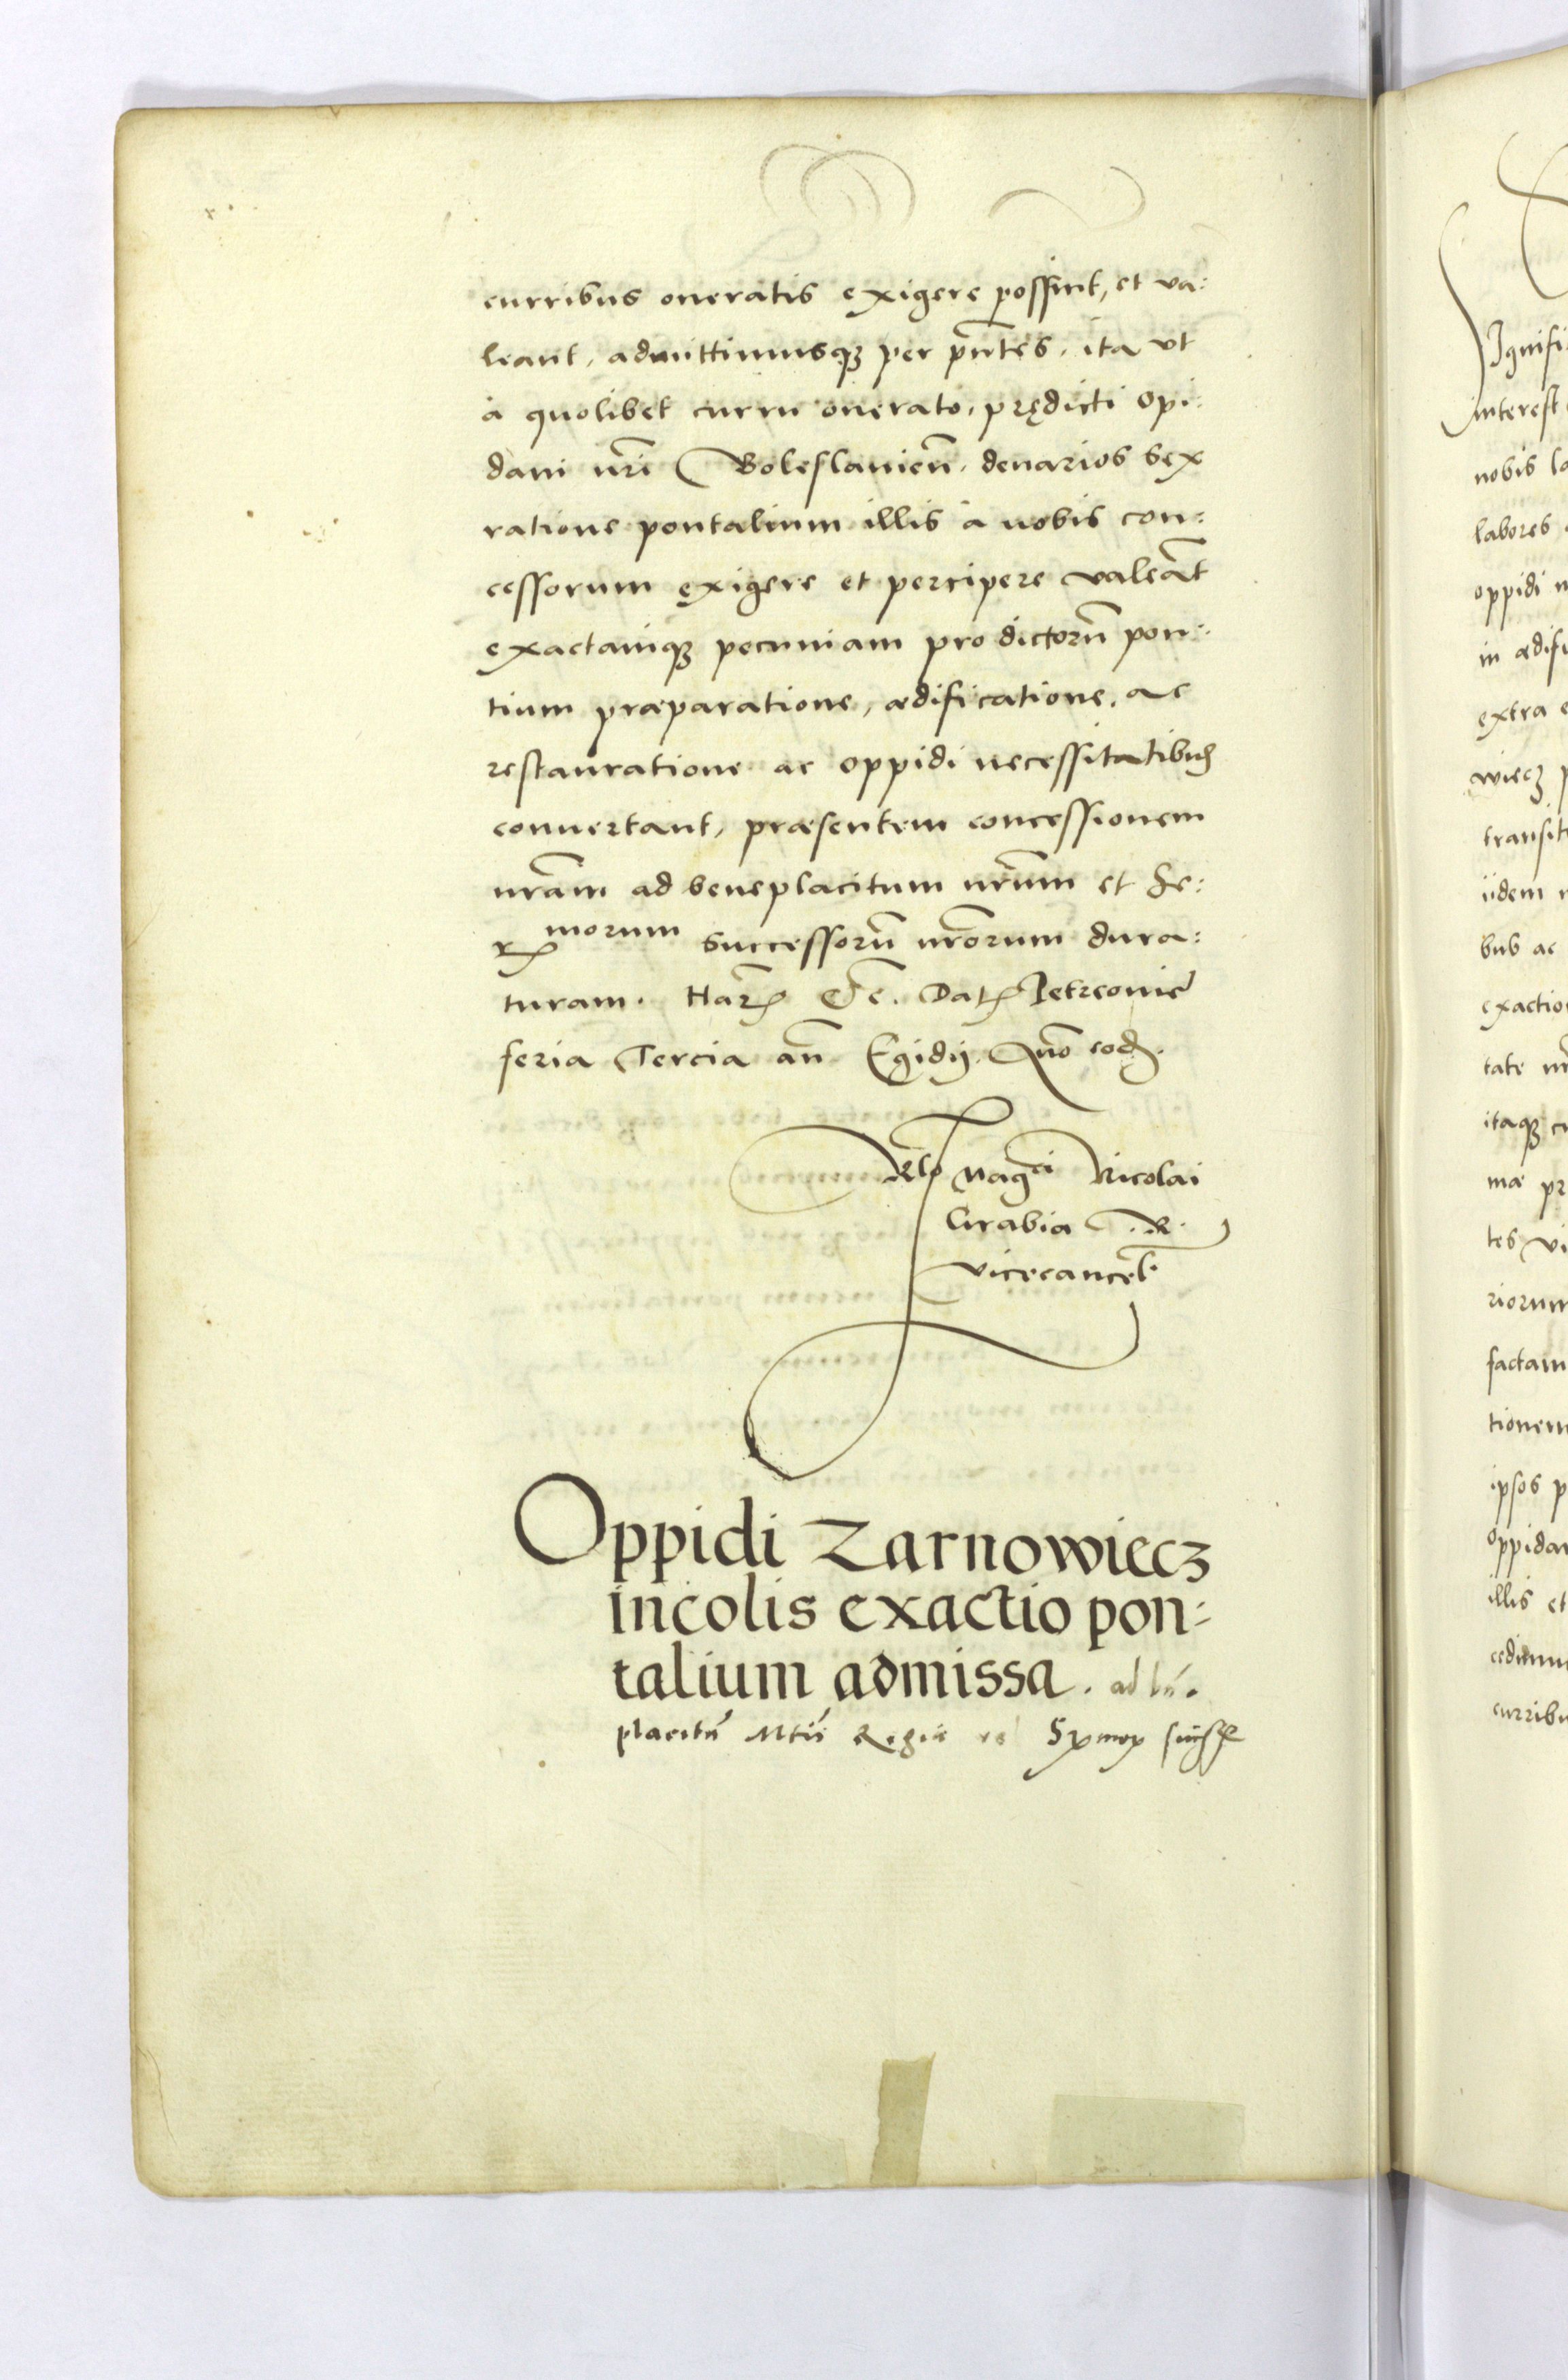 curribus oneratis exigere possint, et va:
leant, admittimusqꝫ per pñtes. ita ut
à quolibet curru onerato, prędicti opi:
dani nr̃i Boleslauień. denarios sex
ratione pontalium illis à nobis con:
cessorum exigere et percipere valeãt
exactamqꝫ pecuniam pro dictorũ pon:
tium præparatione, ædificatione, ac
restauratione ac oppidi necessitatibus
conuertant, præsentem concessionem
nr̃am ad beneplacitum nr̃um et Se:
rmorum successorũ nr̃orum dura:
turam. Har̃ etc̃. Dat Petrconie
feria Tercia añ Egidij. Año eod.
Rlo Magci Nicolai
Grabia R.
vicecancel.
Oppidi Zarnowiecz
incolis exactio pon:
talium admissa. ad bñ.
placitũ Mtis Regie
curribus
Ignifi
interest
nobis la
labores
oppidi n
in ædifi
extra e
wiecz p
transit
iidem
bus ac
exactio
tate nr̃
itaqꝫ cu
mæ pr
tes vi
riorum
factam
tionem
ipsos p
oppidan
illis et
cedimu
curribu